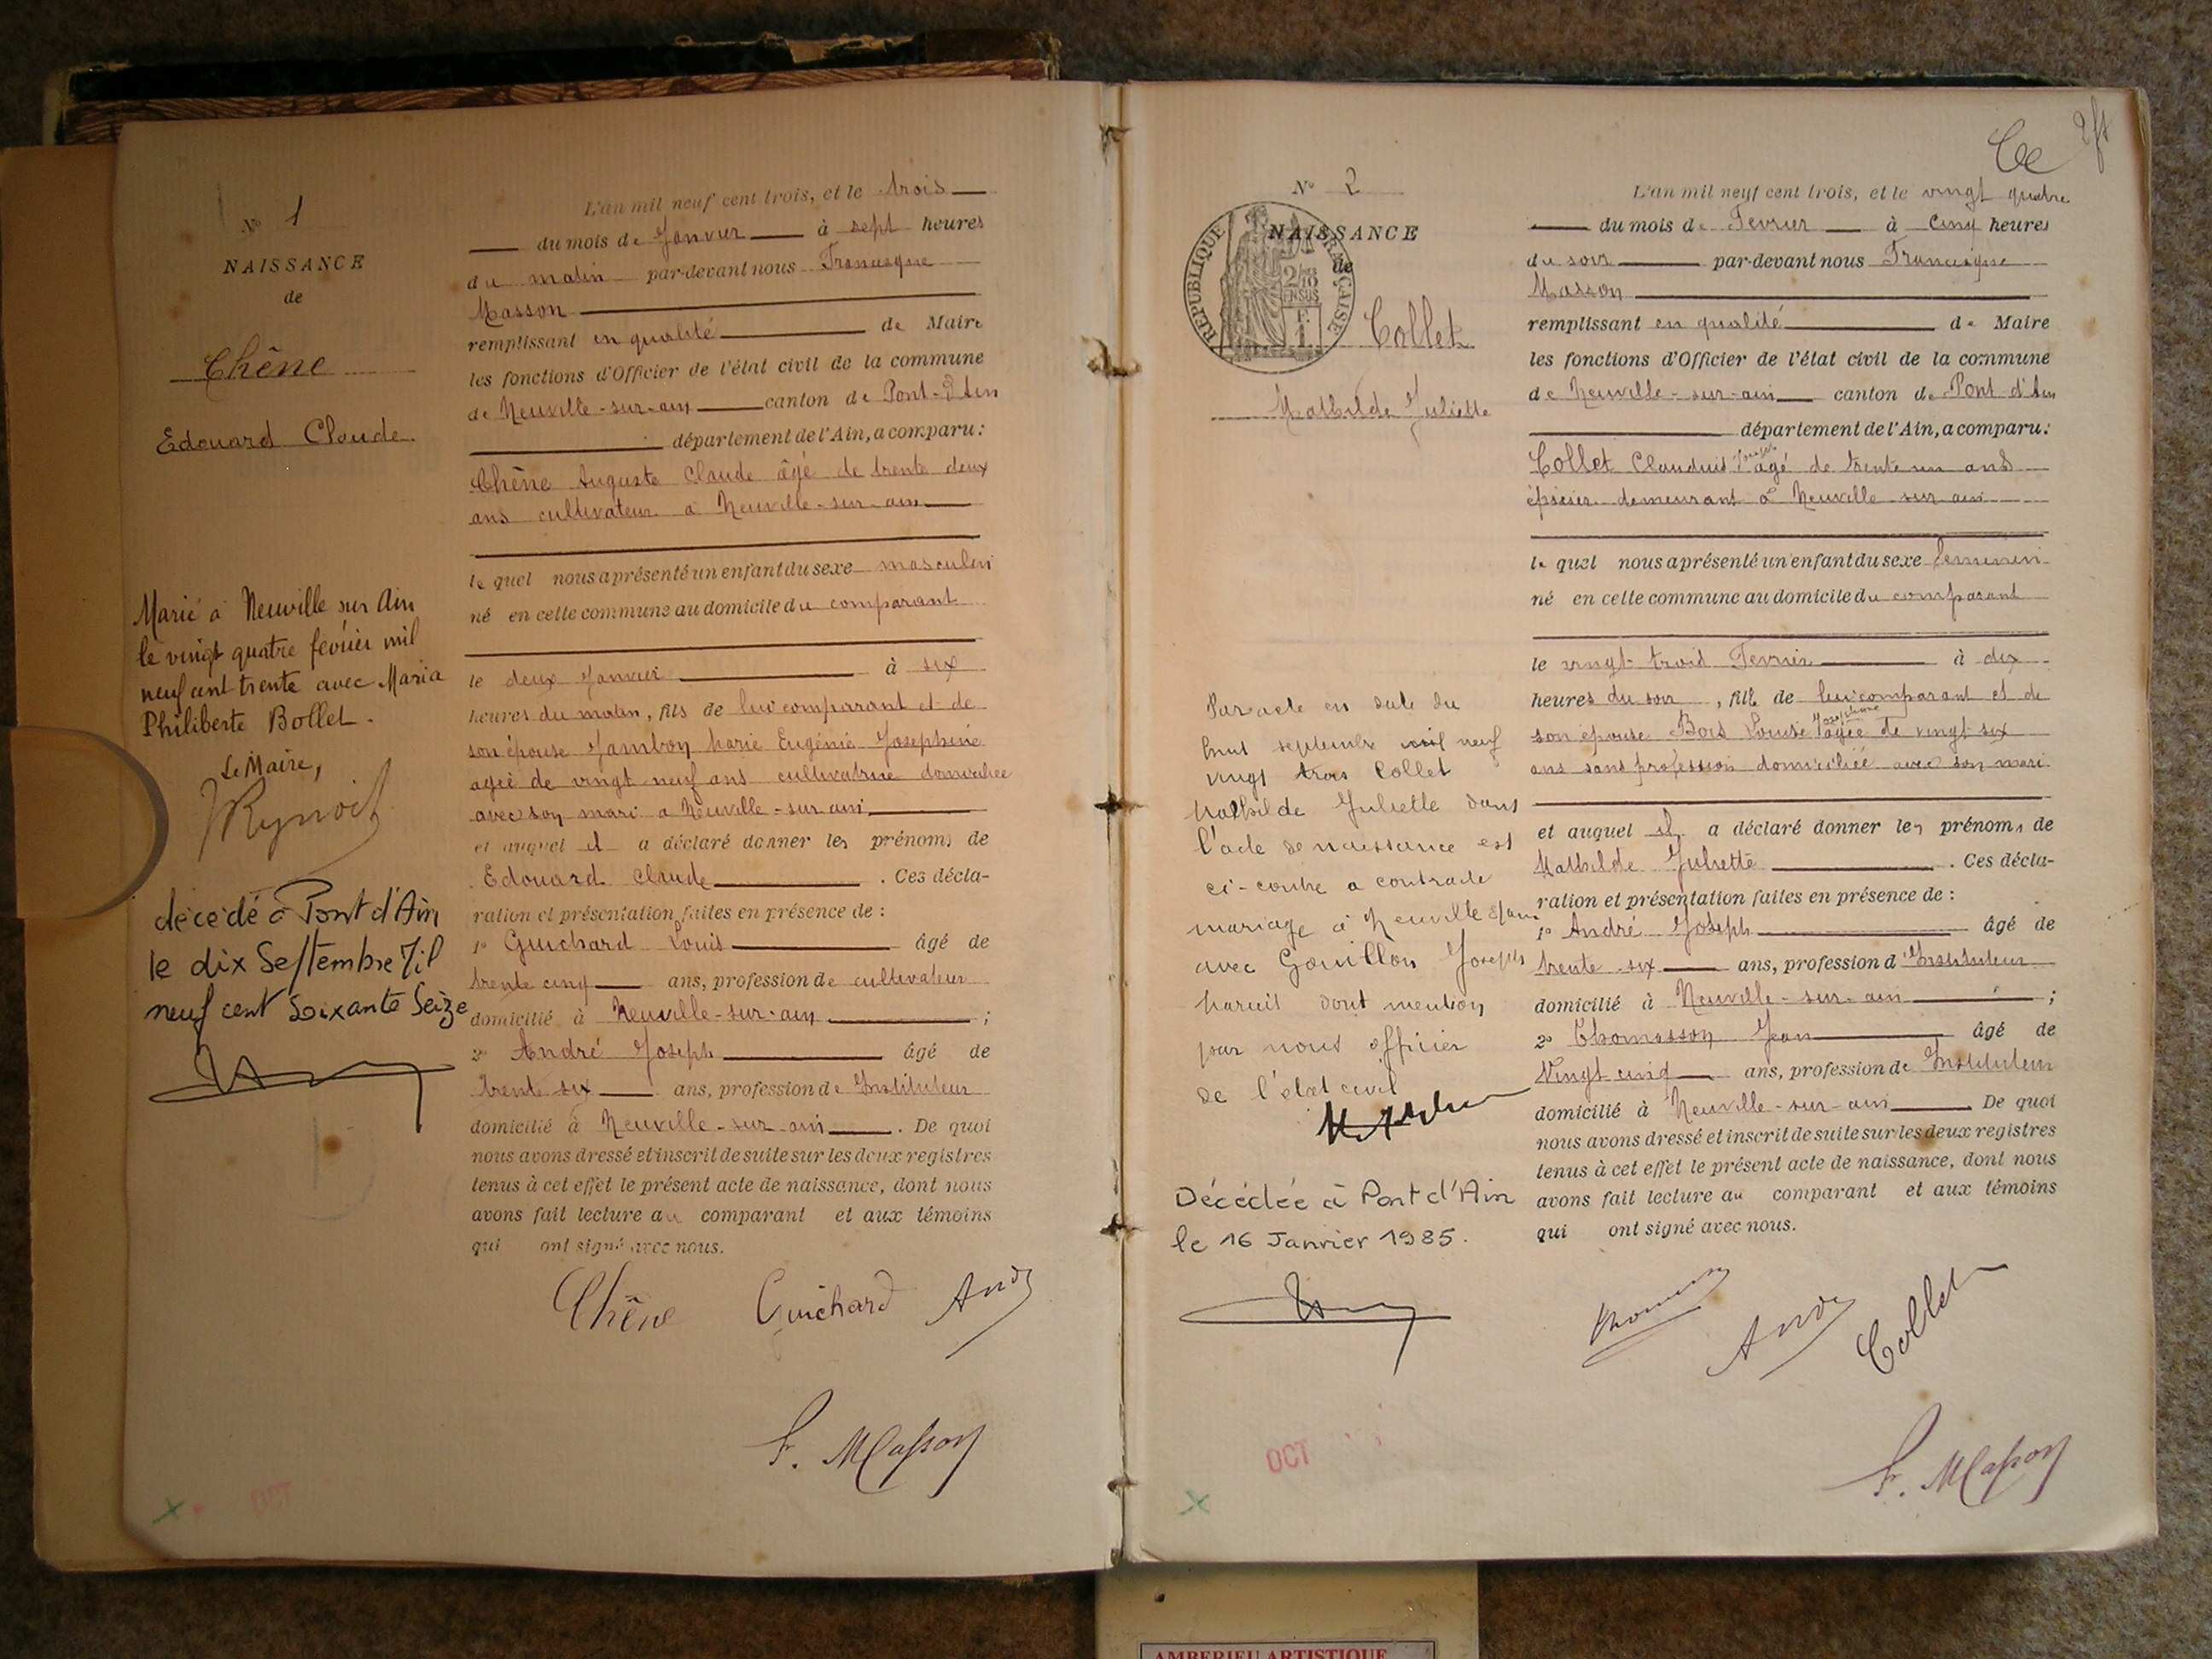 Nº 1
NAISSANCE
de
Chêne
Edouard Claude
Marié à Neuville sur Ain
le vingt quatre février mil
neuf cent trente avec Maria
Philiberte Bollet.
Le Maire,
décédé à Pont d'Ain
le dix Septembre Mil
neuf cent Soixante Seize
L'an mil neuf cent trois, et le trois
du mois de Janvier à sept heures
du matin par-devant nous Francisque
Masson
remplissant en qualité de Maire
les fonctions d'Officier de l'état civil de la commune
de Neuville-sur-ain canton de Pont-d'Ain
département de l'Ain, a comparu:
Chêne Auguste Claude âgé de trente deux
ans cultivateur a Neuville-sur-ain
le quel nous a présenté un enfant du sexe masculin
né en cette commune au domicile du comparant
le deux Janvier à six
heures du matin, fils de lui comparant et de
son épouse Jambon Marie Eugénie Josephine
agée de vingt neuf ans cultivatrice domiciliée
avec son mari a Neuville-sur-ain
et auquel il a déclaré donner les prénoms de
Edouard Claude. Ces décla-
ration et présentation faites en présence de:
1º Guichard Louis âgé de
trente cinq ans, profession de cultivateur
domicilié à Neuville-sur-ain;
2º André Joseph âgé de
trente six ans, profession de Instituteur
domicilié à Neuville-sur-ain. De quoi
nous avons dressé et inscrit de suite sur les deux registres
tenus à cet effet le présent acte de naissance, dont nous
avons fait lecture au comparant et aux témoins
qui ont signé avec nous.
Chêne Guichard André
F. Masson
OCT
Nº 2
NAISSANCE
de
REPUBLIQUE FRANCAISE
2/10 EN SUS
Collet
Mathilde Juliette
Par acte en date du
huit septembre mil neuf
vingt trois Collet
Mathilde Juliette dans
l'acte de naissance est
ci-contre a contracté
mariage à Neuville s/ain
avec Gouillon Joseph
dont mention
par nous officier
de l'état civil
Décédée à Pont d'Ain
le 16 Janvier 1985.
L'an mil neuf cent trois, et le vingt quatre
du mois de Fevrier à cinq heures
du soir par-devant nous Francisque
Masson
remplissant en qualité de Maire
les fonctions d'Officier de l'état civil de la commune
de Neuville-sur-ain canton de Pont-d'Ain
département de l'Ain, a comparu:
Collet Claudius âgé de trente un ans
épicier demeurant à Neuville sur ain
le quel nous a présenté un enfant du sexe feminin
né en cette commune au domicile du comparant
le vingt trois Fevrier à dix
heures du soir, fille de lui comparant et de
Josephine
son épouse Bois Louise agée de vingt six
ans sans profession domiciliée avec son mari
et auquel il a déclaré donner les prénoms de
Mathilde Juliette. Ces décla-
ration et présentation faites en présence de:
1º André Joseph âgé de
trente six ans, profession d'Instituteur
domicilié à Neuville-sur-ain;
2º Thomasson Jean âgé de
Vingt cinq ans, profession de Instituteur
domicilié à Neuville-sur-ain. De quoi
nous avons dressé et inscrit de suite sur les deux registres
tenus à cet effet le présent acte de naissance, dont nous
avons fait lecture au comparant et aux témoins
qui ont signé avec nous.
André Collet
F. Masson
OCT
AMBERIEU ARTISTIQUE